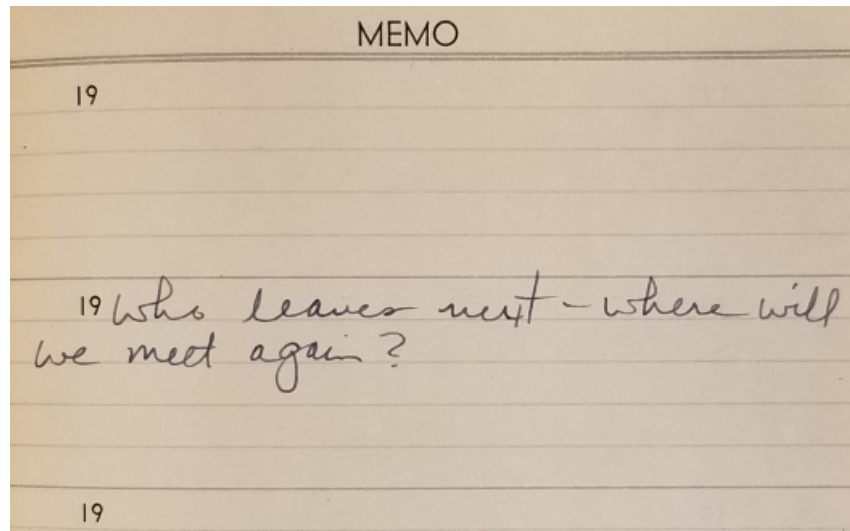 MEMO
19
19 Who leaves next - where will
we meet again?
19